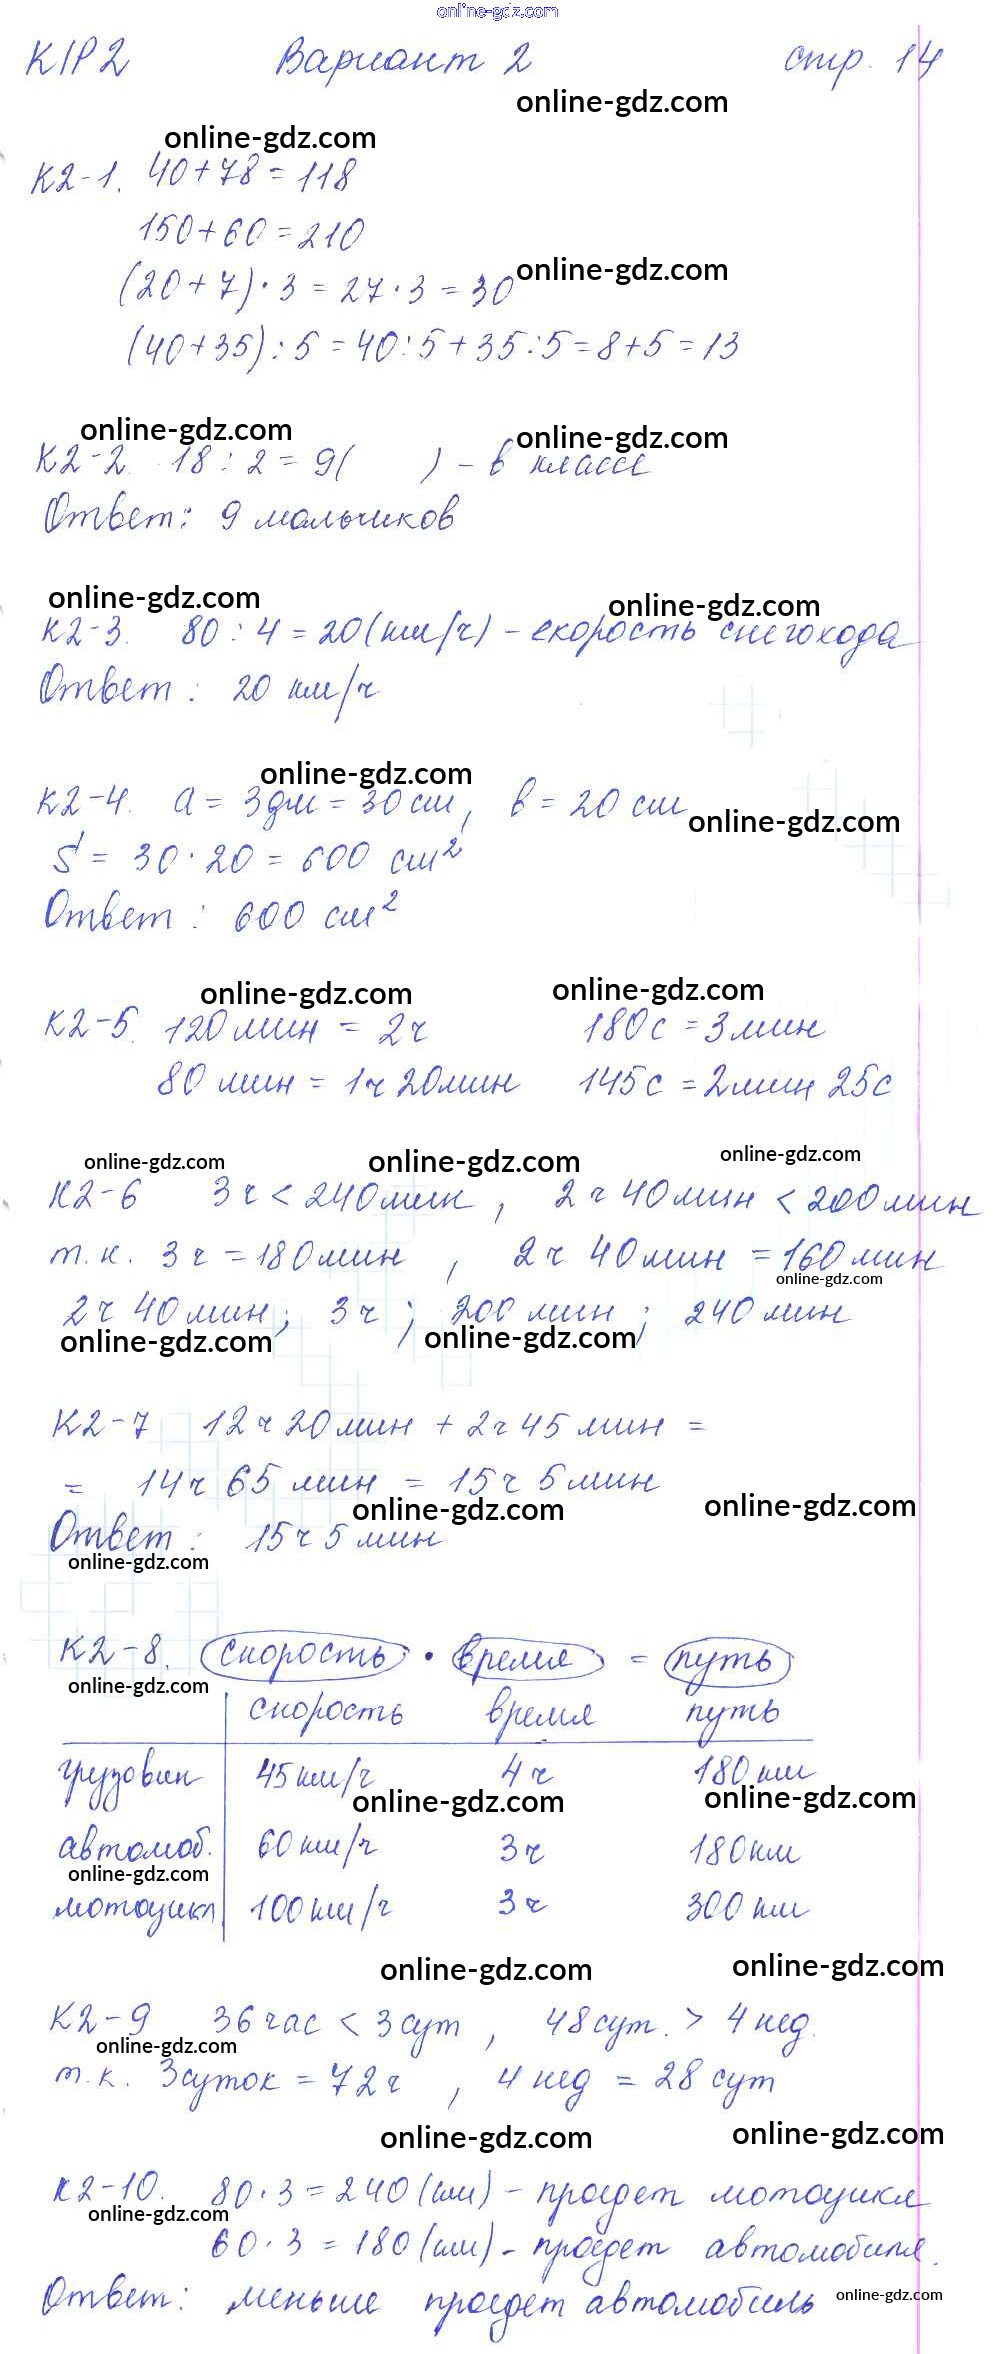 online-gdz.com
К/Р 2 Вариант 2 стр. 14
online-gdz.com
online-gdz.com
К2-1. 40+78=118
150+60=210
online-gdz.com
(20+7)·3=27·3=30
(40+35):5=40:5+35:5=8+5=13
online-gdz.com online-gdz.com
К2-2. 18:2=9( ) - в классе
Ответ: 9 мальчиков
online-gdz.com online-gdz.com
К2-3. 80:4=20(км/ч) - скорость снегохода
Ответ: 20 км/ч
online-gdz.com
К2-4. а = 3дм = 30 см, в = 20 см
online-gdz.com
S = 30·20 = 600 см²
Ответ: 600 см²
online-gdz.com online-gdz.com
К2-5. 120 мин = 2ч 180с = 3 мин
80 мин = 1ч 20мин 145с = 2мин 25с
online-gdz.com online-gdz.com online-gdz.com
К2-6 3ч < 240 мин, 2ч 40мин < 200 мин
т.к. 3ч = 180 мин, 2ч 40 мин = 160 мин
online-gdz.com
2ч 40 мин; 3ч; 200 мин; 240 мин
online-gdz.com online-gdz.com
К2-7 12ч 20 мин + 2ч 45 мин =
= 14ч 65 мин = 15ч 5 мин
online-gdz.com online-gdz.com
Ответ: 15ч 5 мин
online-gdz.com
К2-8. скорость · время = путь
online-gdz.com
скорость время путь
грузовик 45 км/ч 4ч 180 км
online-gdz.com online-gdz.com
автомоб. 60 км/ч 3ч 180 км
online-gdz.com
мотоцикл 100 км/ч 3ч 300 км
online-gdz.com online-gdz.com
К2-9 36 час < 3 сут, 48 сут. > 4 нед.
online-gdz.com
т.к. 3суток = 72ч, 4 нед = 28 сут
online-gdz.com online-gdz.com
К2-10. 80·3=240(км) - проедет мотоцикл
online-gdz.com
60·3=180(км) - проедет автомобиль.
Ответ: меньше проедет автомобиль
online-gdz.com